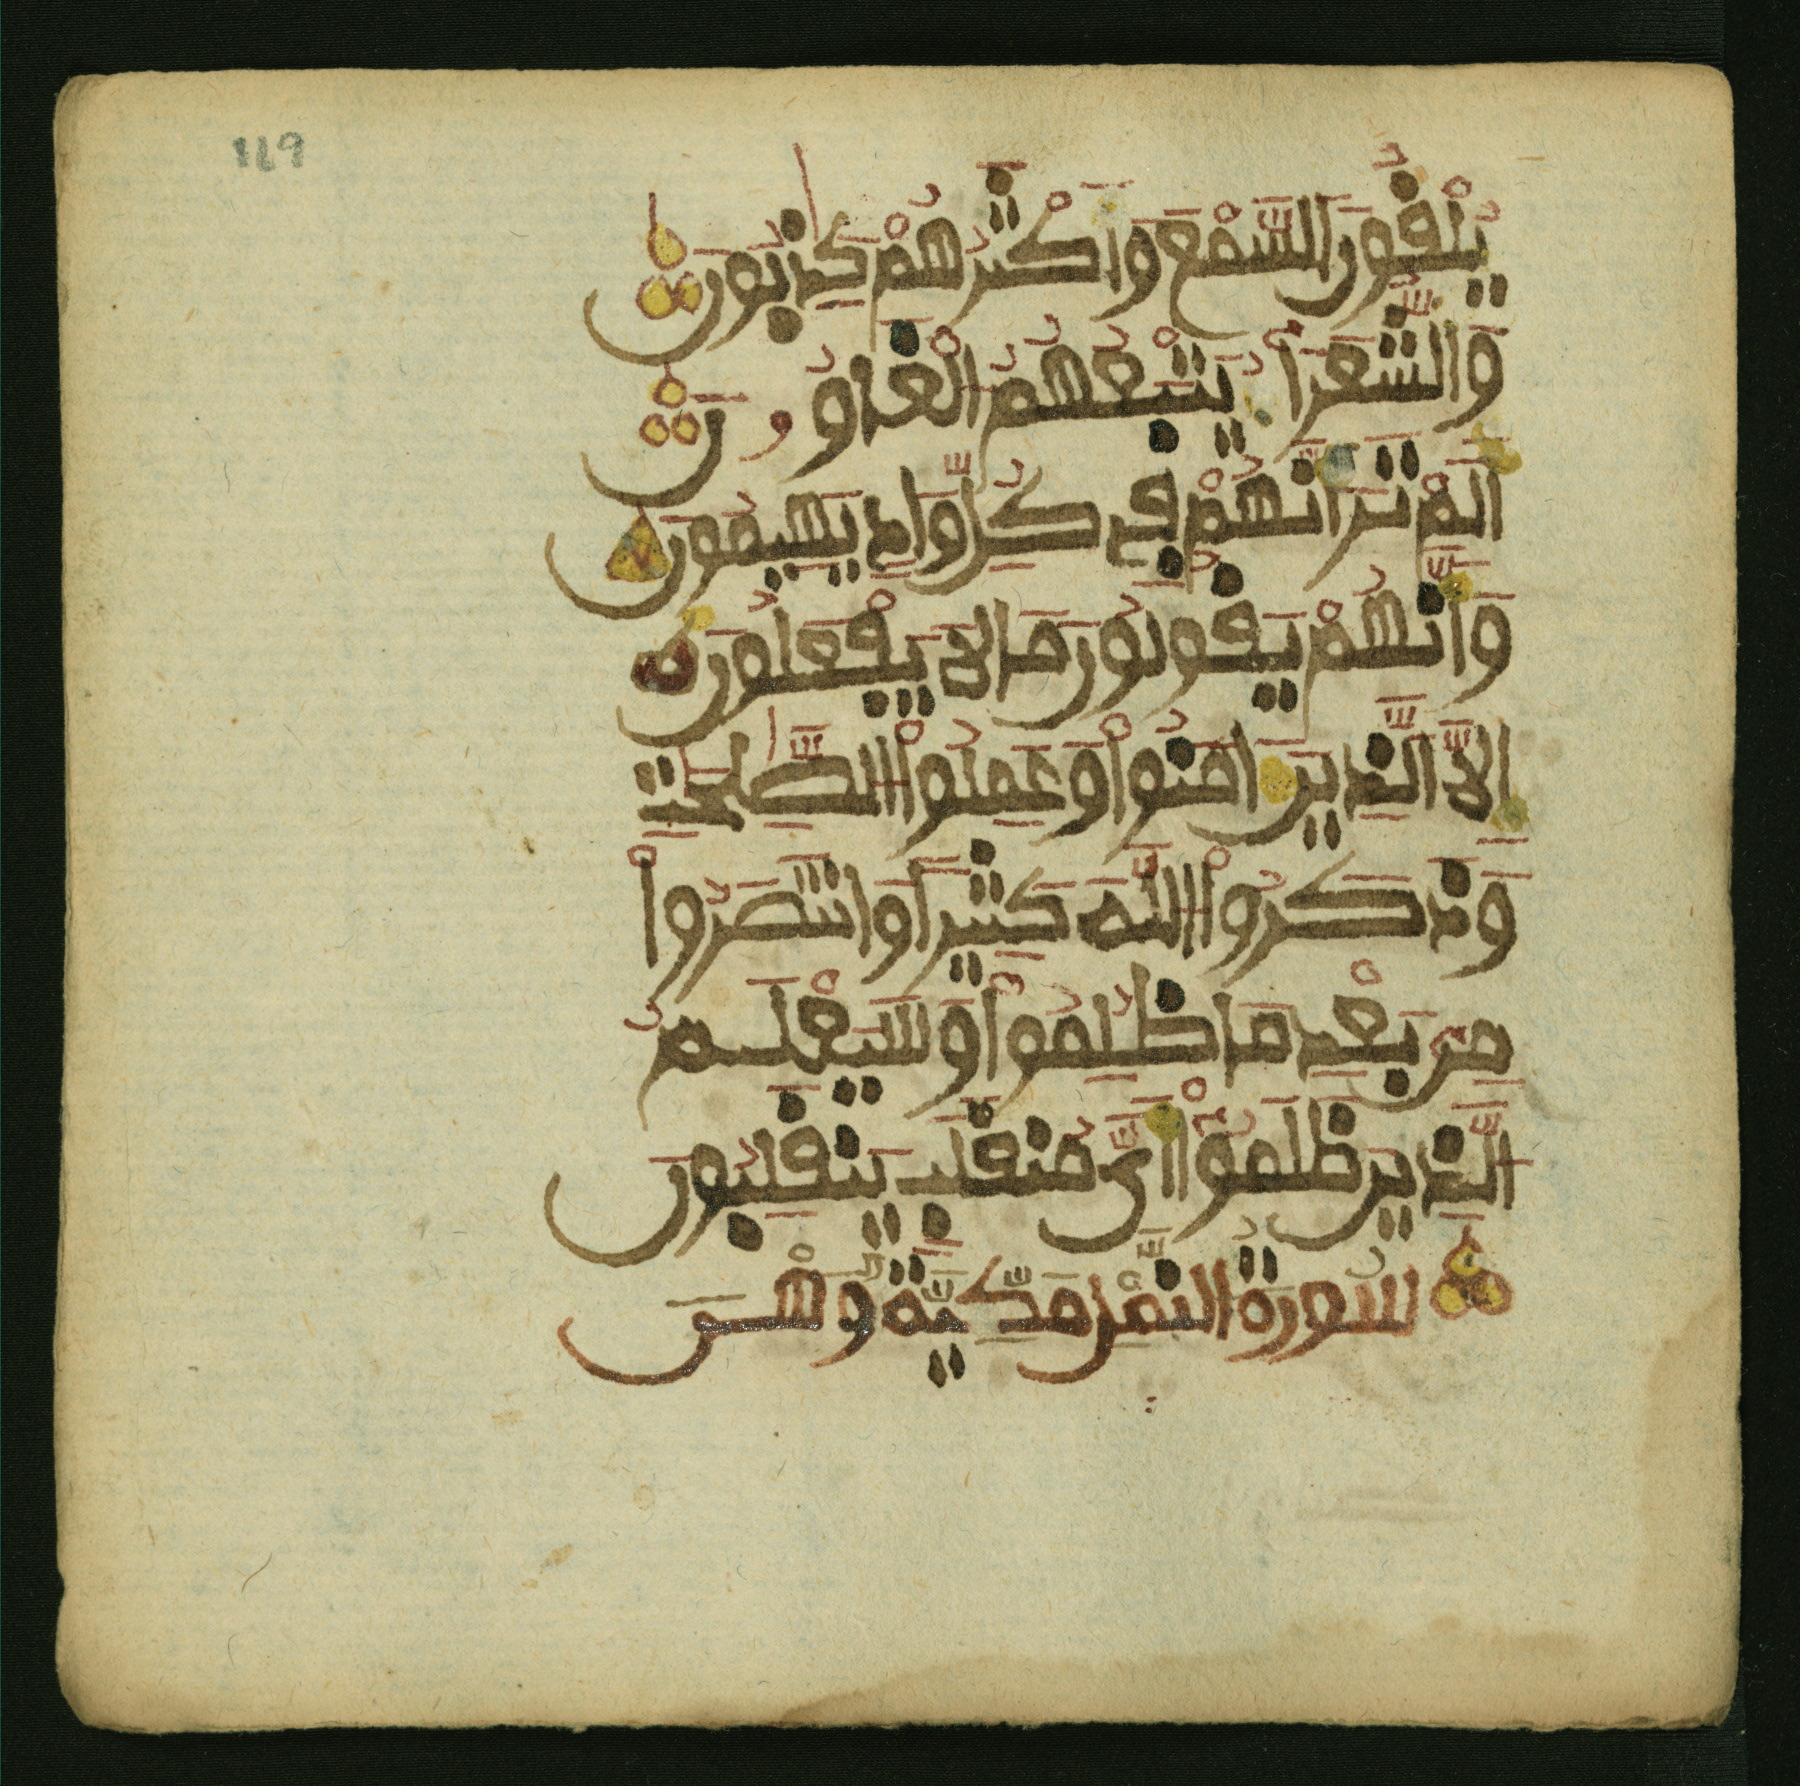 119
يُلْفُونَ السَّمْعَ وَأَكْثَرُهُمْ كَٰذِبُونَ
وَالشُّعَرَاءُ يَتْبَعُهُمُ الْغَاوُۥنَ
أَلَمْ تَرَ أَنَّهُمْ فِي كُلِّ وَادٍ يَهِيمُونَ
وَأَنَّهُمْ يَقُولُونَ مَا لَا يَفْعَلُونَ
إِلَّا الَّذِينَ ءَامَنُوا وَعَمِلُوا الصَّٰلِحَٰتِ
وَذَكَرُوا اللَّهَ كَثِيرًا وَانتَصَرُوا
مِن بَعْدِ مَا ظُلِمُوا وَسَيَعْلَمُ
الَّذِينَ ظَلَمُوا أَيَّ مُنقَلَبٍ يَنقَلِبُونَ
سُورَةُ النَّمْلِ مَكِّيَّةٌ وَهْيَ